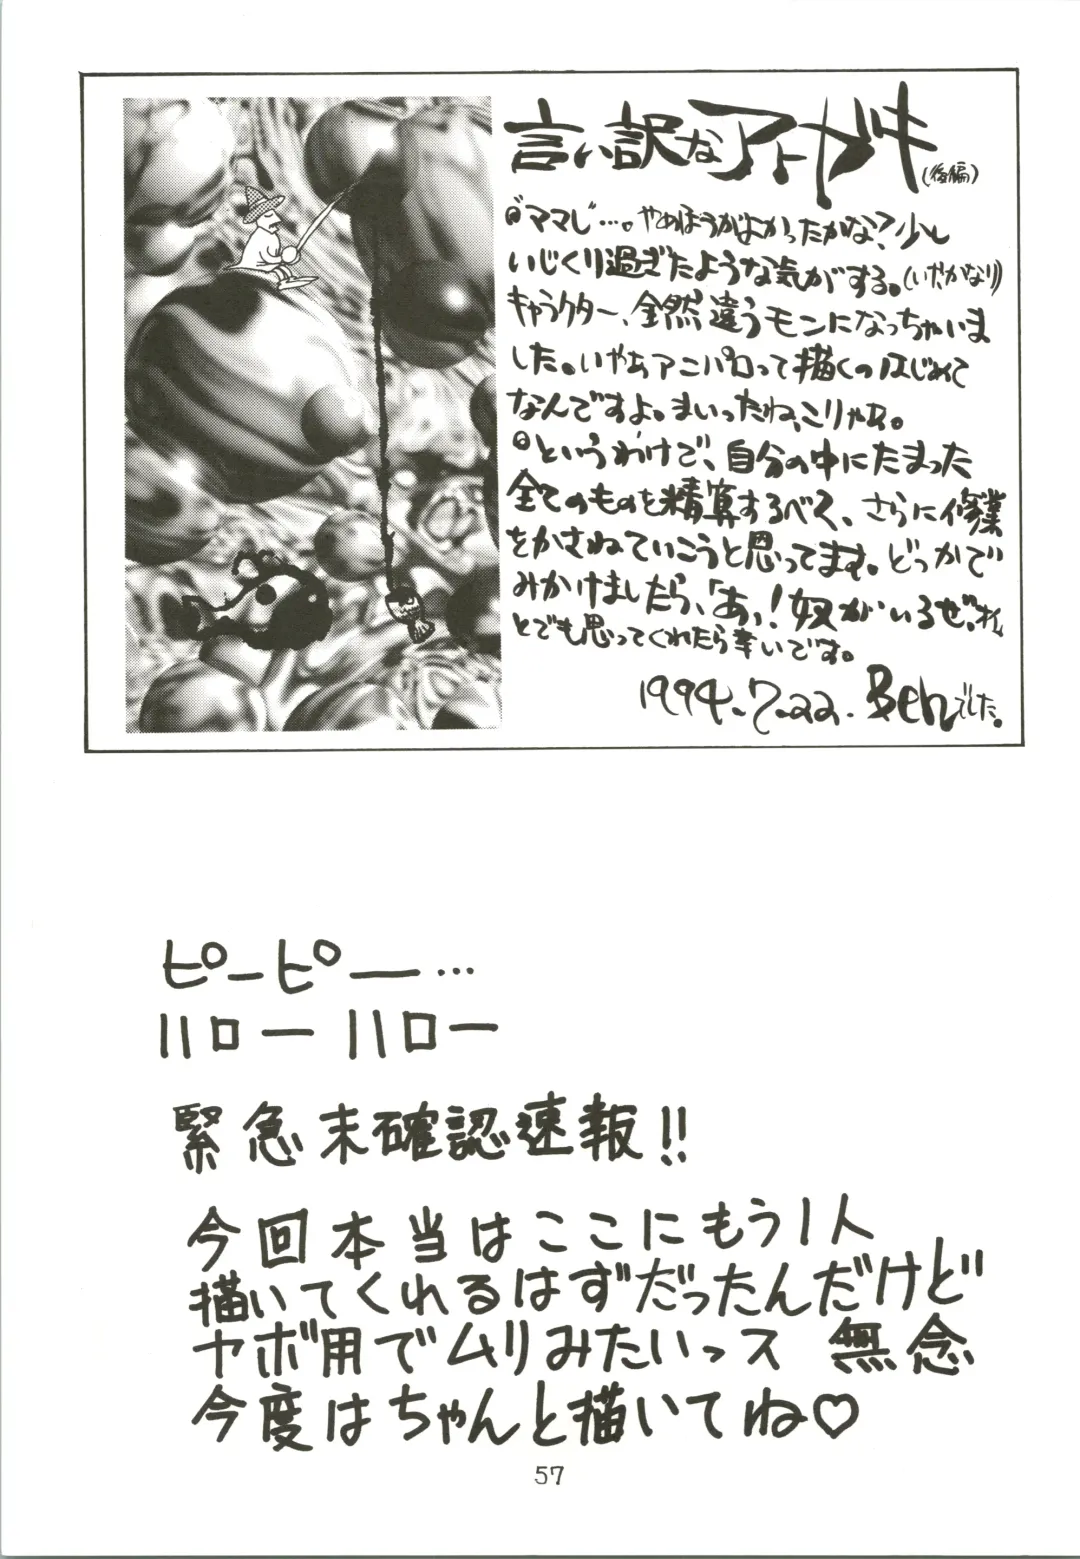 言い訳なアトガキ(後編)
“ママレ”…。やめほうがよかったかな?少し
いじくり過ぎたような気がする。(いや、かなり)
キャラクター、全然違うモンになっちゃいま
した。いやぁアニパロって描くのはじめて
なんですよ。まいったね、こりゃあ。
というわけで、自分の中にたまった
全てのものを精算するべく、さらに修業
をかさねていこうと思ってます。どっかで
みかけましたら、「あっ!奴がいるぜ、
とでも思ってくれたら幸いです。
1994.7.22. Benでした。
ピーピー…
ハローハロー
緊急未確認速報!!
今回本当はここにもう1人
描いてくれるはずだったんだけど
ヤボ用でムリみたいっス 無念
今度はちゃんと描いてね♡
57